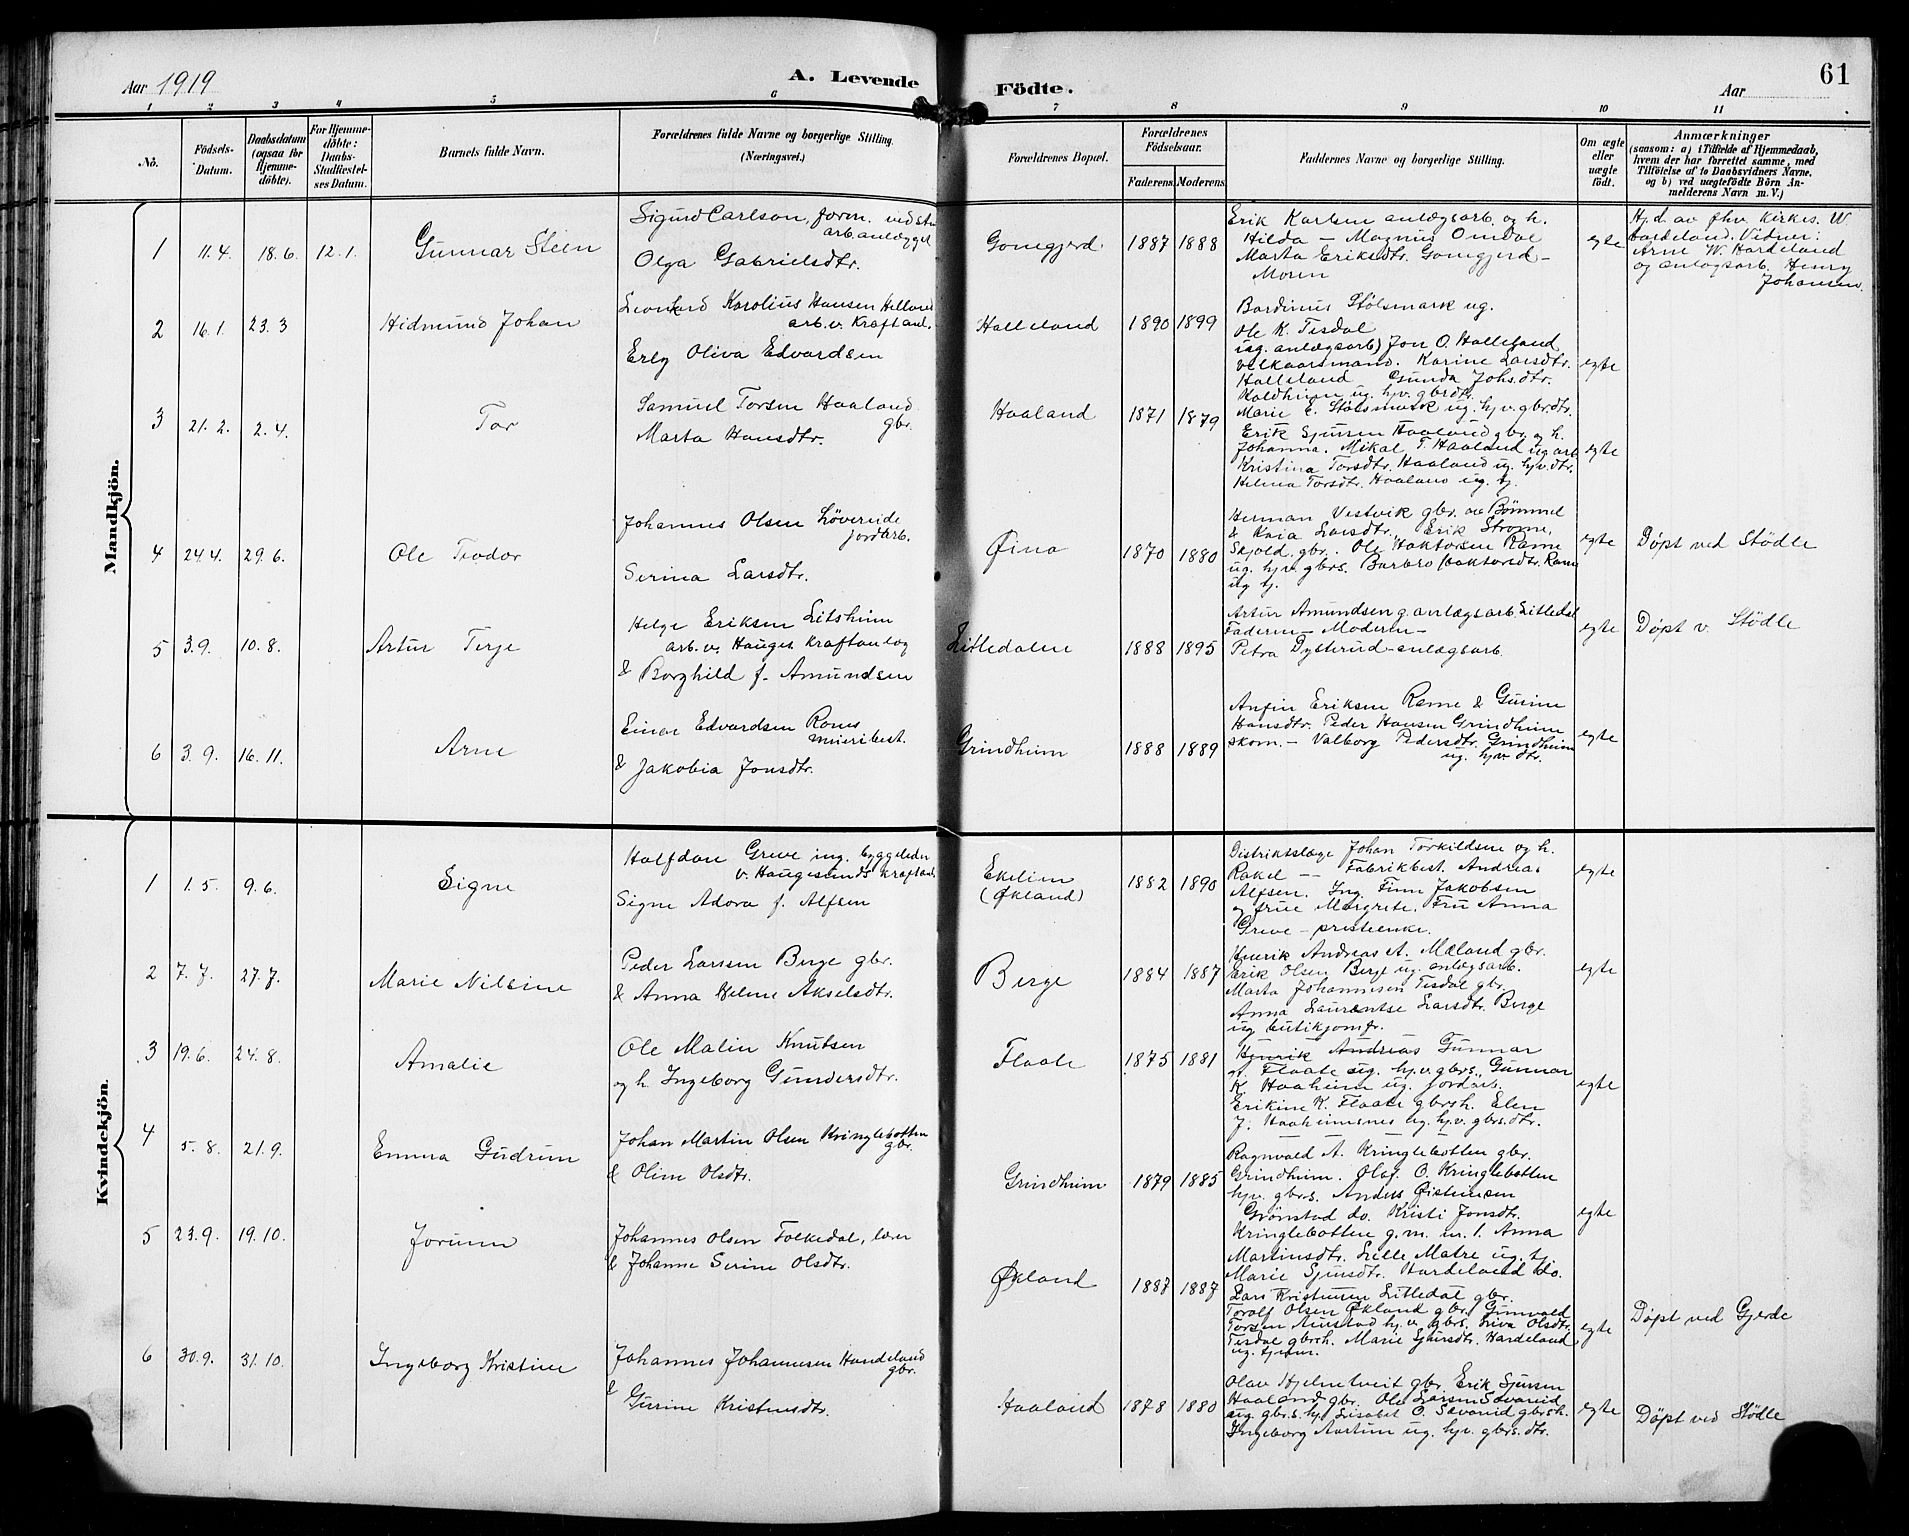 Aar 1919
A. Levende
Födte.
Aar
61
1 2 3 4 5 6 7 8 9 10 11
No.
Födsels-
Datum.
Daabsdatum
(ogsaa for
Hjemme-
döbte).
For Hjemme-
döbte:
Daabs-
Stadfæstel-
ses Datum.
Barnets fulde Navn.
Forældrenes fulde Navne og borgerlige Stilling.
(Næringsvei.)
Forældrenes Bopæl.
Forældrenes
Födselsaar.
Faderens. Moderens.
Faddernes Navne og borgerlige Stilling.
Om ægte
eller
uægte
født.
Anmærkninger
(saasom: a) i Tilfælde af Hjemmedaab,
hvem der har forrettet samme, med
Tilföielse af to Daabsvidners Navne,
og b) ved uægtefödte Börn An-
melderens Navn m. V.)
Mandkjön.
1 11.4. 18.6. 12.1. Gunnar Steen
Sigurd Carlson, form. ved
arb. anlægget
Olga Gabrielsdtr.
Gomgjerd 1887 1888
Erik Karlsen anlægsarb. og h.
Hilda – Magnus Omdal
Marta Eriksdtr. Gomgjerd –
Moren
egte
Hj.d. av fhv. Kirkes. W
Hardeland. Vidner:
Arne W. Hardeland
og anlægsarb. Henry
Johansen.
2 16.1. 23.3 Hidmund Johan
Leonhard Karolius Hansen Helland
arb. v. Kraftanl.
Erly Oliva Edvardsen
Halleland 1890 1899
Bardinus Stølsmark ug.
Ole K. Tisdal
ug. anlægsarb) Jon O. Halleland
velkaarsmand. Karine Larsdtr.
Halleland Gunda Johs.dtr.
Koldheim ug. hj.v. gbrdtr.
Marie E. Stølsmark ug. hj.v. gbr.dtr.
egte
3 21.2. 2.4. Tor
Samuel Torsen Haaland
gbr.
Marta Hansdtr.
Haaland 1871 1879
Erik Sjursen Haaland gbr. og h.
Johanna. Mikal T. Haaland ug arb.
Kristina Torsdtr. Haaland ug. hjv. dtr.
Helma Torsdtr. Haaland ug. tj.
egte
4 24.4. 29.6. Ole Teodor
Johannes Olsen Løvereide
jordarb.
Serina Larsdtr.
Øina 1870 1880
Herman Vestvik gbr. av Bømmel
& Kaia Larsdtr., Erik Strome,
Skjold, gbr. Ole Haktorsen Rame
ug. hj.v. gbrs. Barbro Haktorsdtr. Rame
ug tj.
egte
Døpt ved Stødle
5 3.9. 10.8. Artur Terje
Helge Eriksen Litsheim
arb. v. Hauges. Kraftanlæg
& Borghild f. Amundsen
Litledalen 1888 1895
Artur Amundsen g. anlægsarb. Litledal
Faderen – Moderen –
Petra Dysterud – anlægsarb.
egte
Døpt v. Stødle
6 3.9. 16.11. Arne
Einar Edvardsen Rames
mueribest.
& Jakobia Jonsdtr.
Grindheim 1888 1889
Anfin Eriksen Rame & Gurine
Hansdtr. Peder Hansen Grindheim
skom. – Valborg Pedersdtr. Grindheim
ug. hjv. dtr.
egte
Kvindekjön.
1 1.5. 9.6. Signe
Halfdan Greve ing. byggeleder
v. Haugesunds Kraftanl.
Signe Adora f. Alfsen
Ekelim
(Økland)
1882 1890
Distriktslæge Johan Torkildsen og h.
Rakel – – Fabrikbest. Andreas
Alfsen. Ing. Finn Jakobsen
og frue Margrete. Fru Anna
Greve – presteenke.
egte
2 7.7. 27.7. Marie Nilsine
Peder Larsen Berge gbr.
& Anna Helene Akselsdtr.
Berge 1884 1887
Henrik Andreas A. Mæland gbr.
Erik Olsen Berge ug. anlægsarb.
Marta Johannesen Tisdal gbr.
Anna Laurentse Larsdtr. Berge
ug butikjomfr.
egte
3 19.6. 24.8. Amalie
Ole Malin Knutsen
og h. Ingeborg Gundersdtr.
Flaate 1875 1881
Henrik Andreas Gunnar
Flaate ug. hj.v. gbrs. Gunnar
K Haaheim ug. jordarb.
Erikine K. Flaate gbrsh. Elen
J. Haaheimsnes ug. hj.v. gbrs.dtr.
egte
4 5.8. 21.9. Emma Gudrun
Johan Martin Olsen Kringlebotten
gbr.
& Oline Olsdtr.
Grindheim 1879 1885
Ragnvald A. Kringlebotten gbr.
Grindheim. Olaf O. Kringlebotten
hjv. gbrs. Anders Øistensen
Grønstad do. Kristi Jonsdtr.
Kringlebotten g. m. nr. 1. Anna
Martinsdtr. Lille Matre ug. tj.
Marie Sjursdtr. Hardeland do.
egte
5 23.9. 19.10. Jorunn
Johannes Olsen Folkedal, lærer
& Johanne Serine Olsdtr.
Økland 1887 1887
Lars Kristensen Litledal gbr.
Toralf Olsen Økland gbr. Gunvald
Torsen Austad hj.v. gbrs. Liva Olsdtr.
Tisdal gbrsh. Marie Sjursdtr. Hardeland
ug. tjener.
egte
Døpt ved Gjerde
6 30.9. 31.10. Ingeborg Kristine
Johannes Johannesen Handeland
gbr.
& Gurine Kristensdtr.
Haaland 1878 1880
Olav Hjelmtveit gbr. Erik Sjursen
Haaland gbr. Ole Larsen Sævareid
ug. gbr.s. hj. Lisabet O. Sævareid gbrsh.
Ingeborg Aartun ug. hj.v. gbrs. dtr.
egte
Døpt ved Stødle